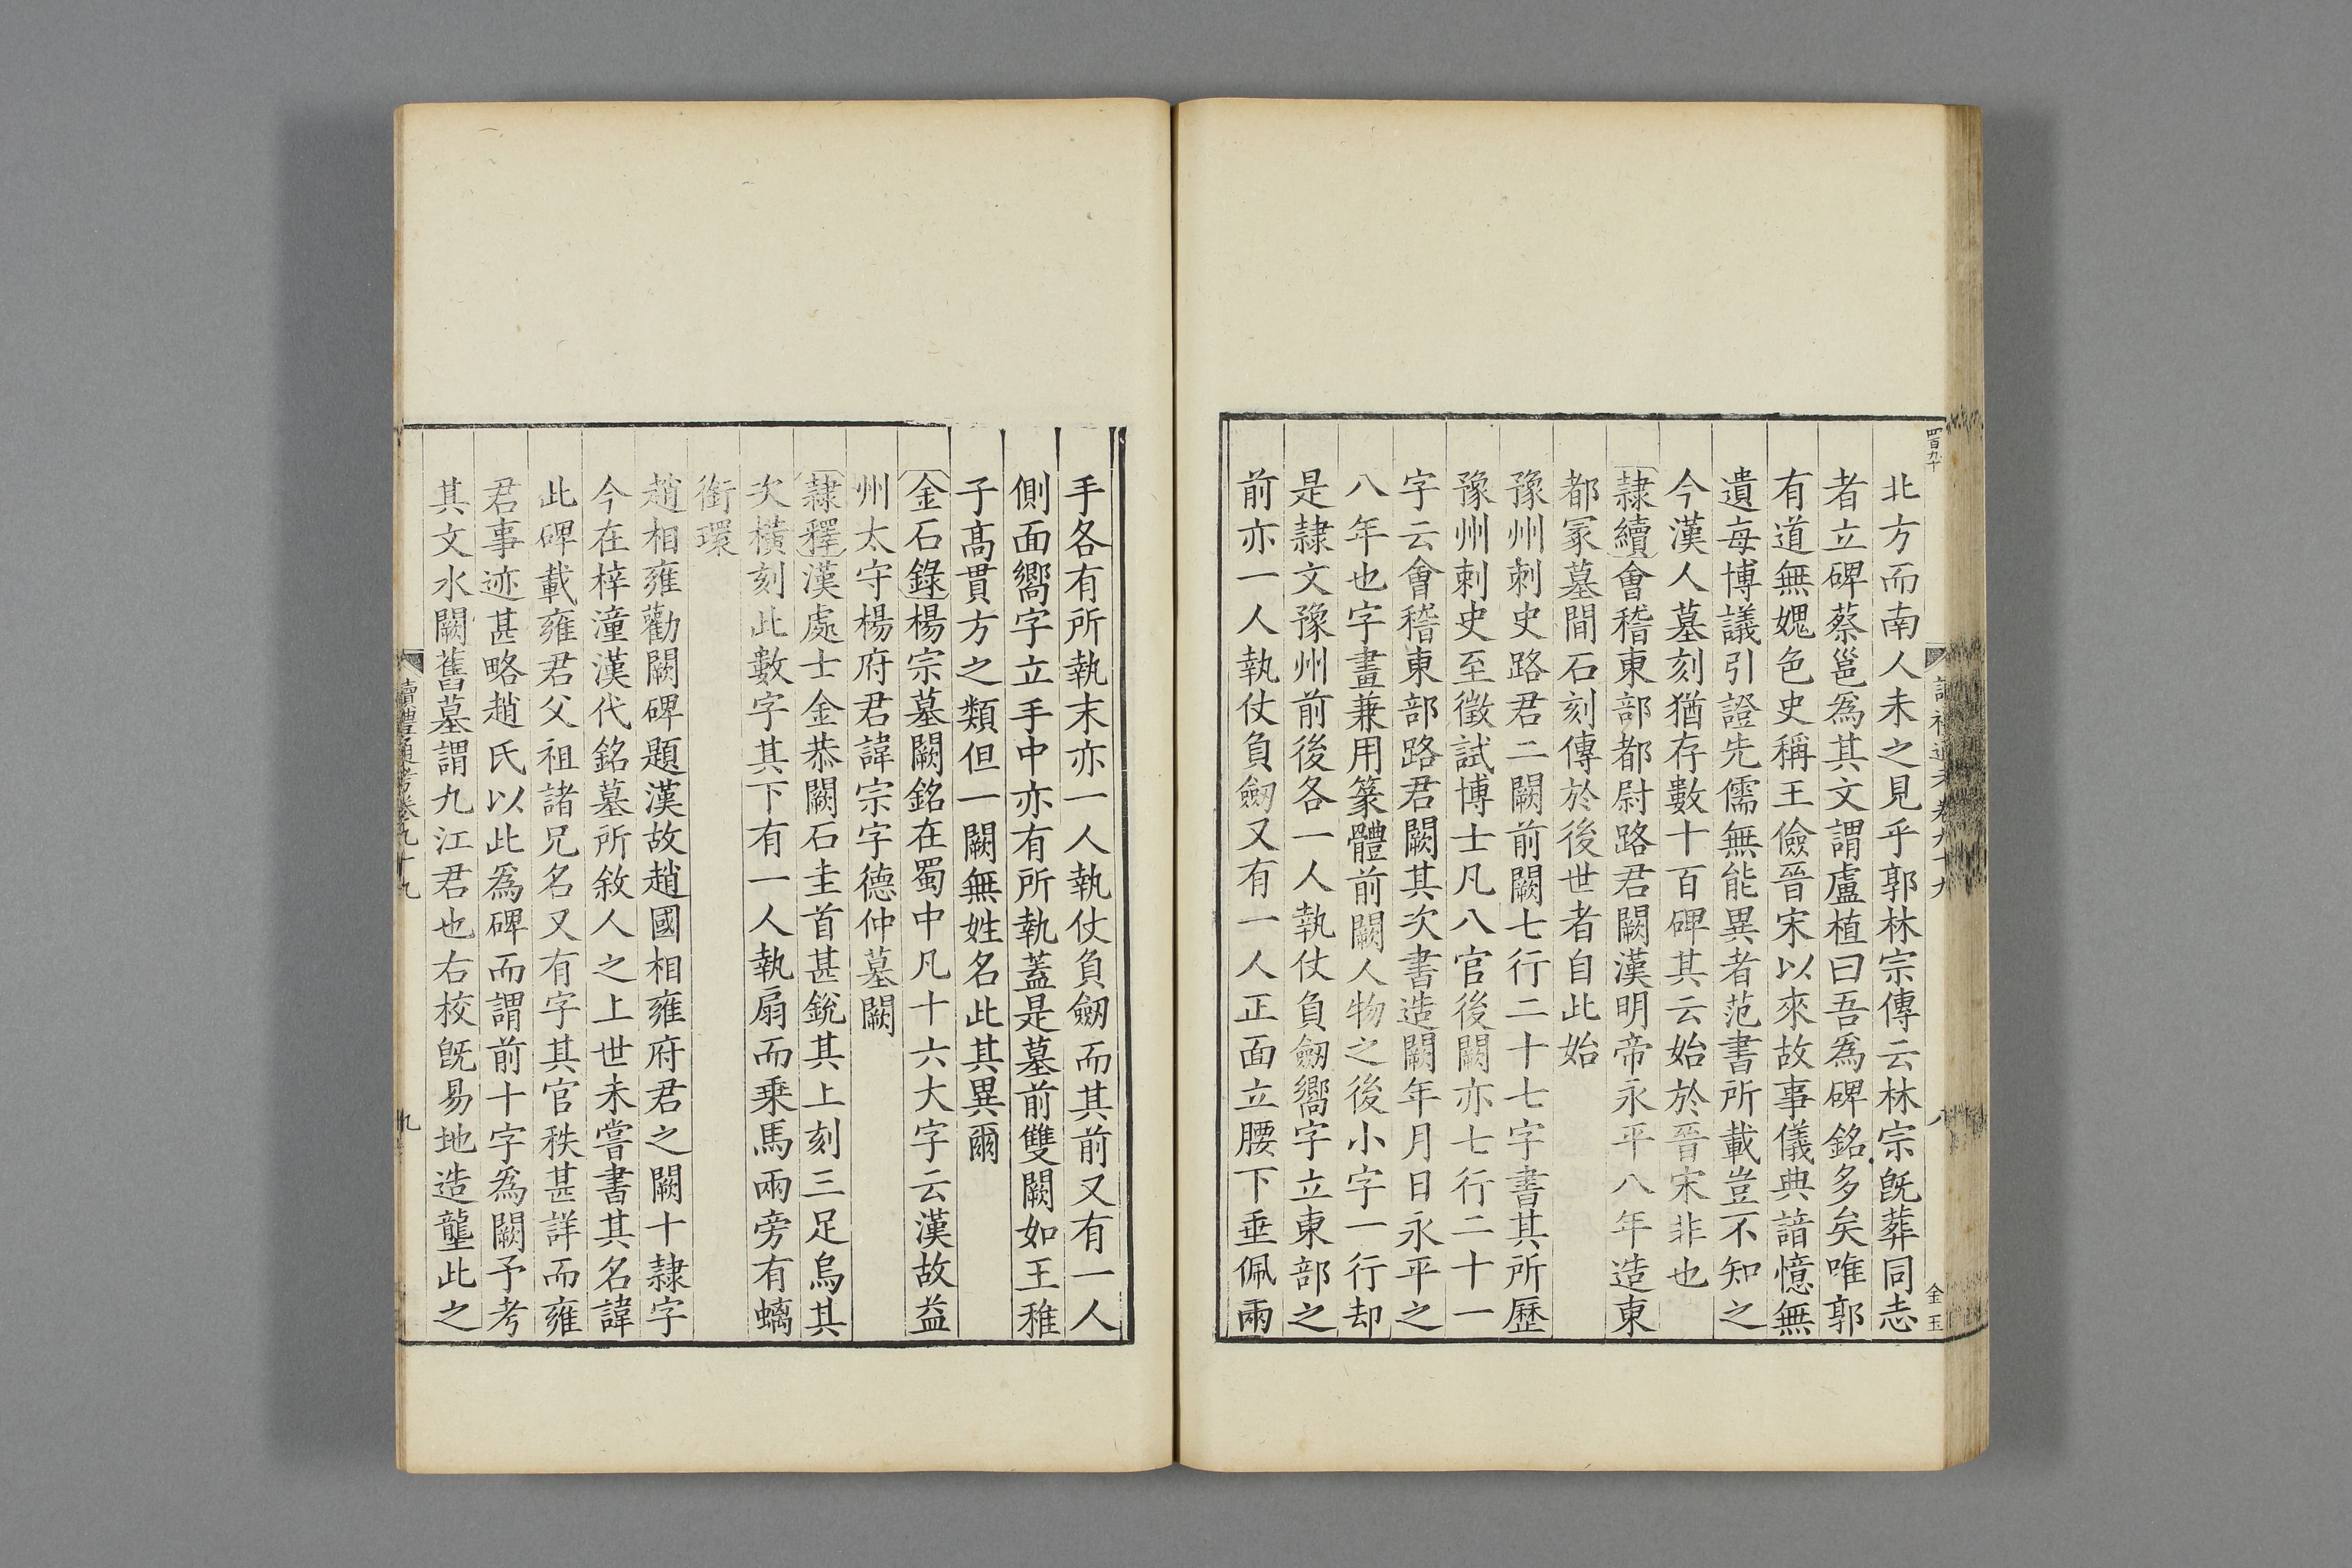 四百九十
讀禮通考卷九十九
八
金玉
北方而南人未之見乎郭林宗傳云林宗旣葬同志
者立碑蔡邕爲其文謂盧植曰吾爲碑銘多矣唯郭
有道無媿色史稱王儉晉宋以來故事儀典諳憶無
遺每博議引證先儒無能異者范書所載豈不知之
今漢人墓刻猶存數十百碑其云始於晉宋非也
隷續會稽東部都尉路君闕漢明帝永平八年造東
都冢墓間石刻傳於後世者自此始
豫州刺史路君二闕前闕七行二十七字書其所歷
豫州刺史至徵試博士凡八官後闕亦七行二十一
字云會稽東部路君闕其次書造闕年月日永平之
八年也字畫兼用篆體前闕人物之後小字一行却
是隷文豫州前後各一人執仗負劒嚮字立東部之
前亦一人執仗負劒又有一人正面立腰下垂佩兩
手各有所執末亦一人執仗負劒而其前又有一人
側面嚮字立手中亦有所執蓋是墓前雙闕如王稚
子髙貫方之類但一闕無姓名此其異爾
金石錄楊宗墓闕銘在蜀中凡十六大字云漢故益
州太守楊府君諱宗字德仲墓闕
隷釋漢處士金恭闕石圭首甚銳其上刻三足烏其
次橫刻此數字其下有一人執扇而乘馬兩旁有螭
銜環
趙相雍勸闕碑題漢故趙國相雍府君之闕十隷字
今在梓潼漢代銘墓所敘人之上世未嘗書其名諱
此碑載雍君父祖諸兄名又有字其官秩甚詳而雍
君事迹甚略趙氏以此爲碑而謂前十字爲闕予考
其文水闕舊墓謂九江君也右校旣易地造壟此之
讀禮通考卷九十九
九